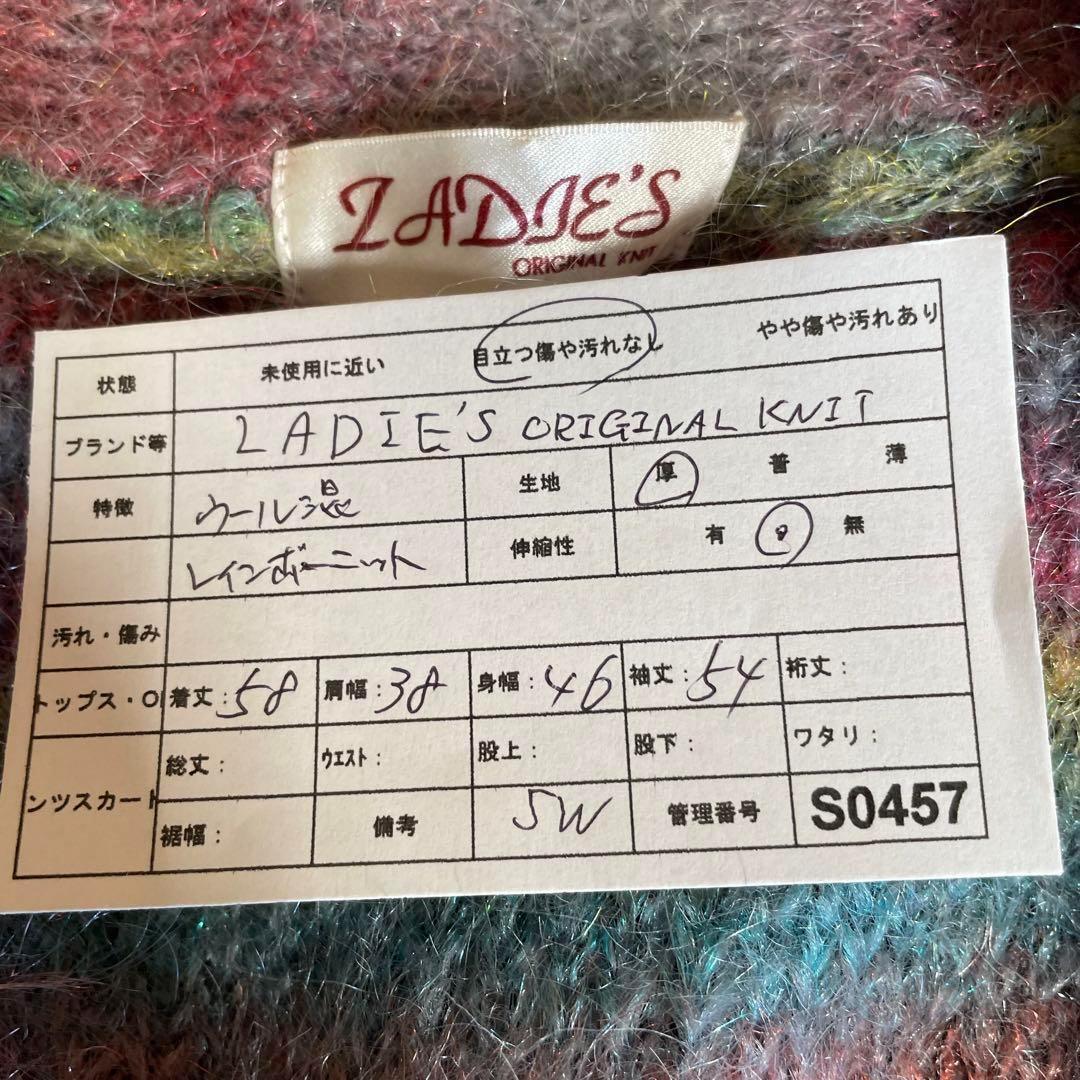 LADIE'S
ORIGINAL KNIT
状態 未使用に近い 目立つ傷や汚れなし やや傷や汚れあり
ブランド等 LADIE'S ORIGINAL KNIT
特徴 ウール混 生地 厚 普 薄
レインボーニット 伸縮性 有 無
汚れ・傷み
トップス・O 着丈:58 肩幅:38 身幅:46 袖丈:54 裄丈:
総丈: ウエスト: 股上: 股下: ワタリ:
ンツスカート
裾幅: 備考 SW 管理番号 S0457